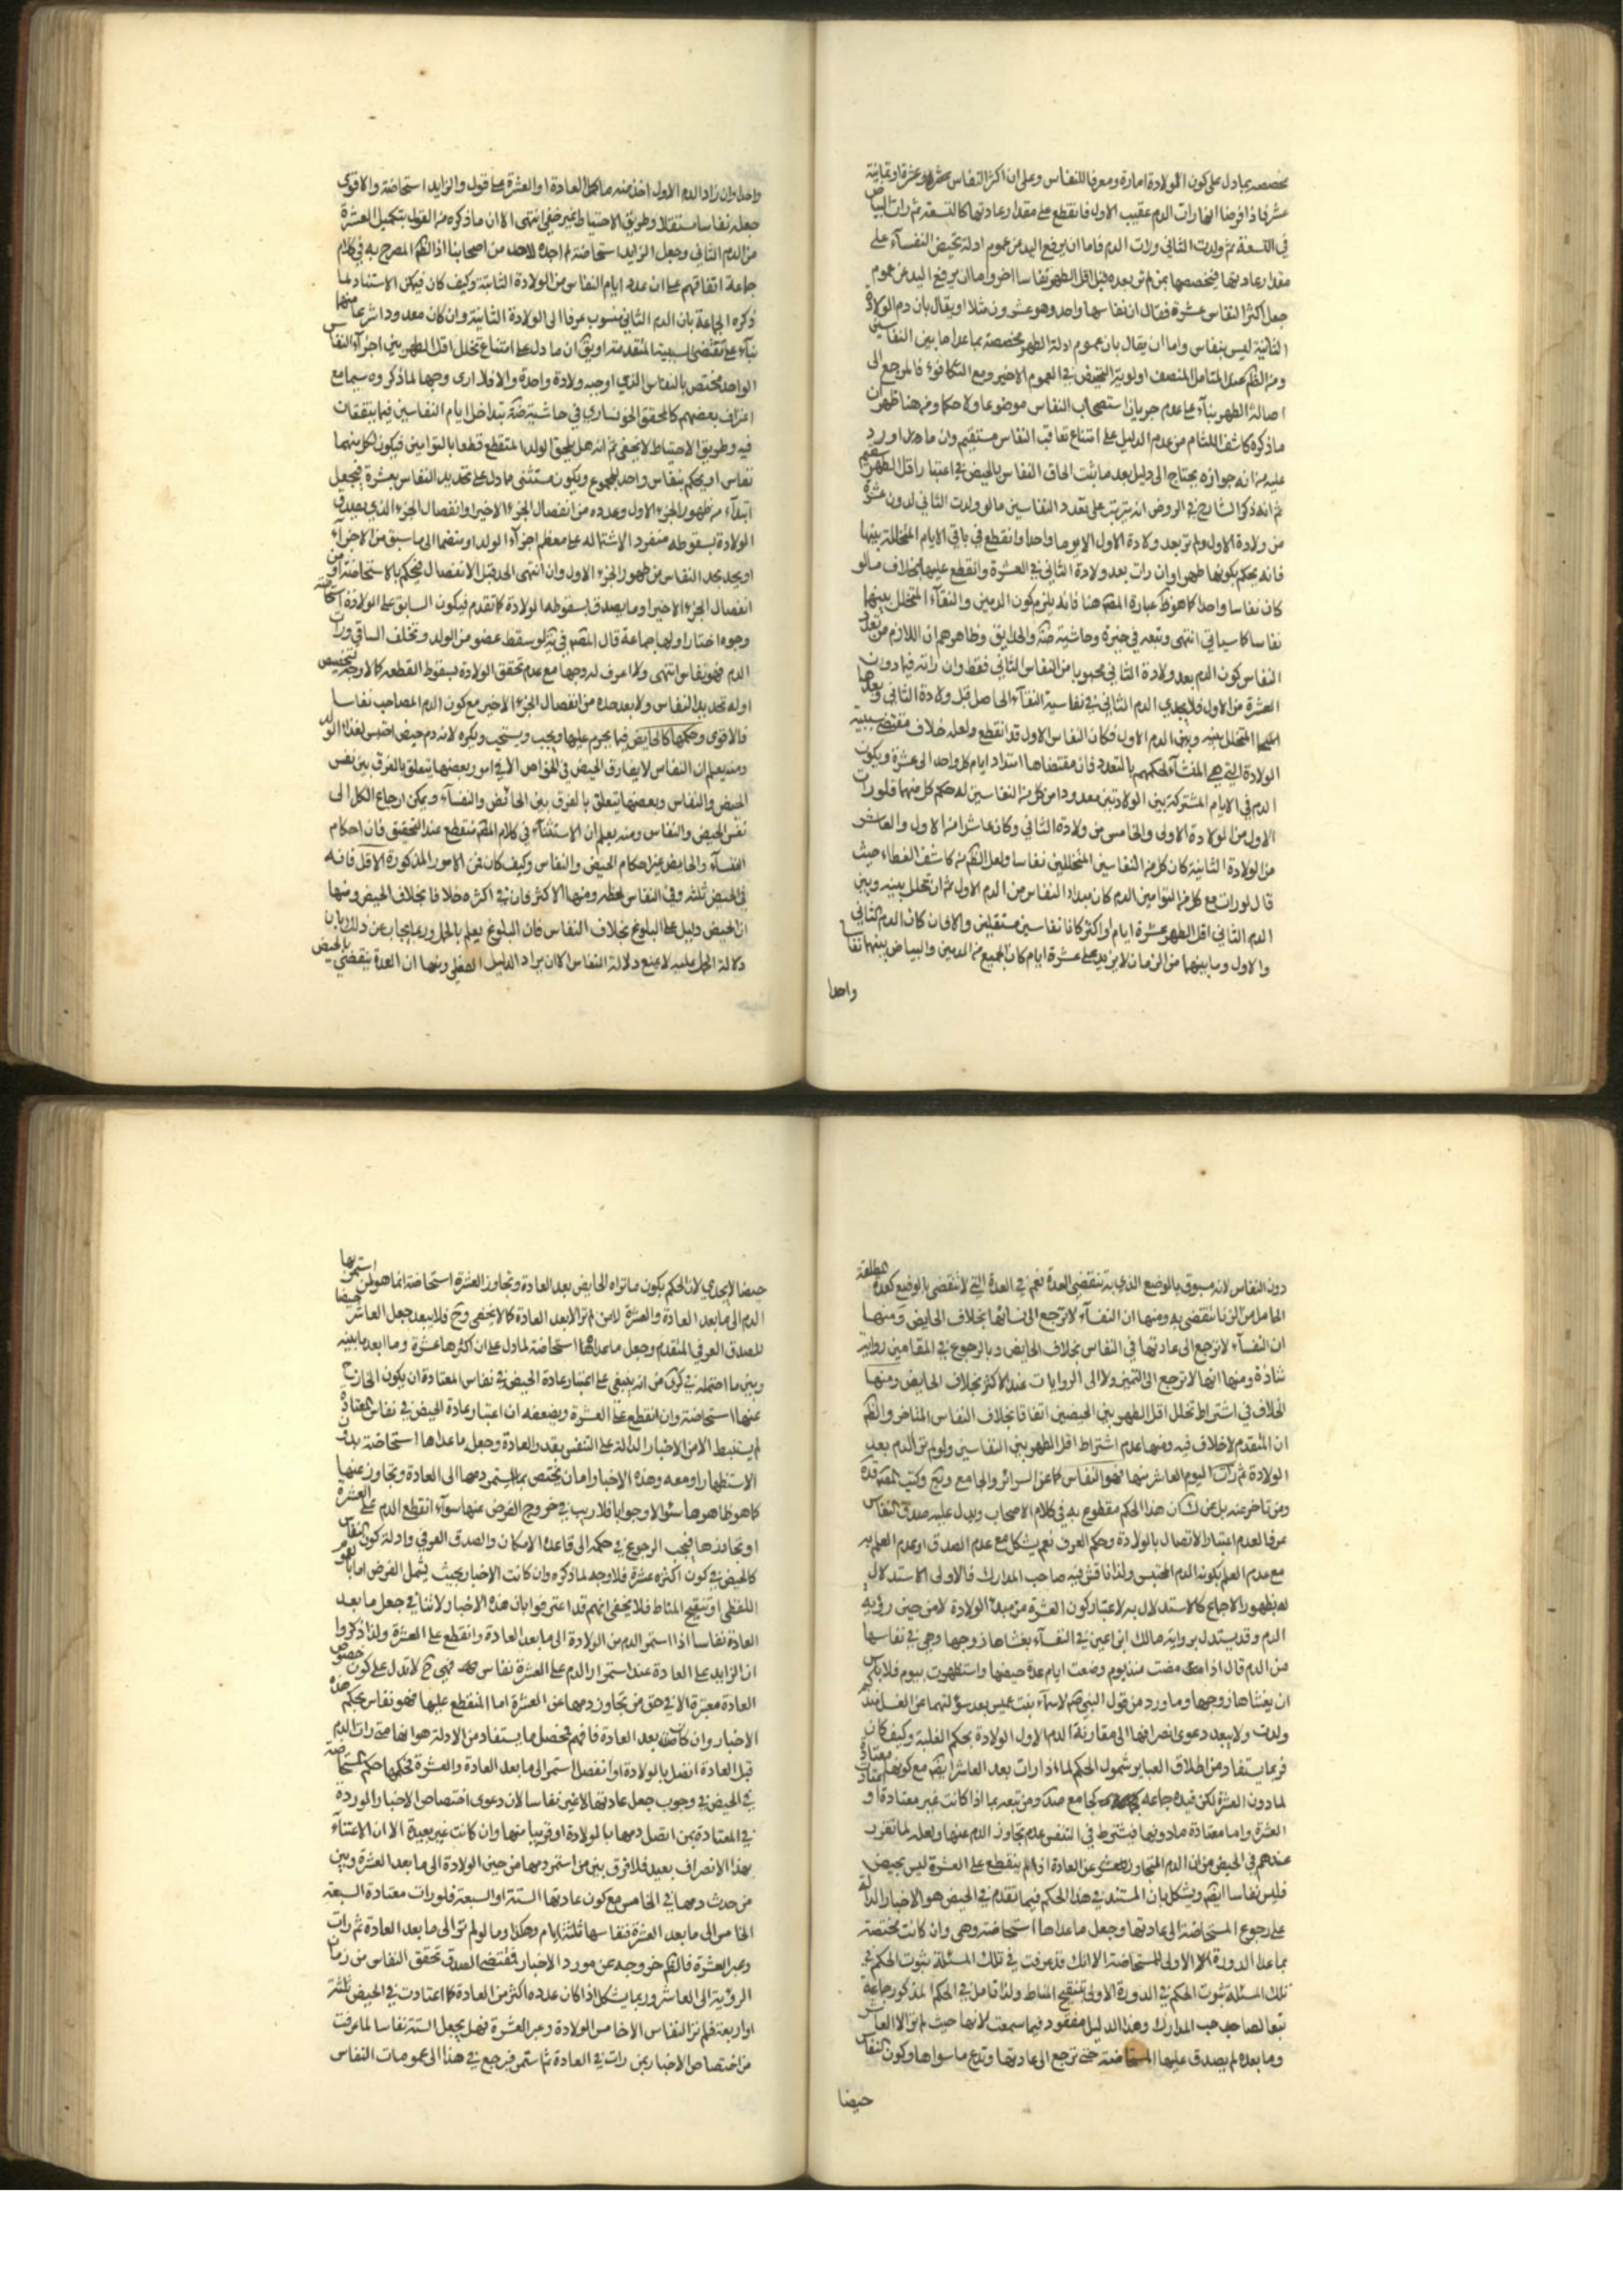 مخصصه بما دل على كون الولادة امارة ومعرفا للنفاس وعلى ان اكثر النفاس عشرة او ثمانية
عشر فاذا فرضنا انها رات الدم عقيب الاول فانقطع على مقدار عادتها كالتسعة ثم رات البياض
في التسعة ثم ولدت الثاني ورات الدم فاما ان يرفع اليد عن عموم ادلة تحيض النفسآء على
مقدار عادتها فيخصصها بمن لم تر بعده قبل اقل الطهر نفاسا اخر واما ان يرفع اليد عن عموم
جعل اكثر النفاس عشرة فيقال ان نفاسها واحد وهو عشرون مثلا او يقال بان دم الولادة
الثانية ليس بنفاس واما ان يقال بان عموم ادلة الطهر مخصصة بما عدا ما بين النفاسين
ومن الظاهر عند المتامل المنصف اولوية التخصيص في العموم الاخير ومع التكافؤ فالمرجع الى
اصالة الطهر بنآء على عدم جريان استصحاب النفاس موضوعا ولا حكما ومن هنا ظهر ان
ماذكره كاشف اللثام من عدم الدليل على امتناع تعاقب النفاس مستقيم وان ما اورد
عليه من انه جوازه يحتاج الى دليل بعد ما ثبت الحاق النفاس بالحيض في اعتبار اقل الطهر سقيم
ثم انه ذكر الشارح في الروض انه يترتب على تعدد النفاسين ما لو ولدت الثاني لدون عشرة
من ولادة الاول ولم تر بعد ولادة الاول الا يوما واحدا وانقطع في باقي الايام المتخللة بينهما
فانه يحكم بكونها طهرا وان رات بعد ولادة الثاني في العشرة وانقطع عليها بخلاف ما لو
كان نفاسا واحدا كما هو ظ عبارة المصه هنا فانه يلزم كون الدمين والنقآء المتخلل بينهما
نفاسا كما سياتي انتهى وتبعه في خيرة وحاشية ضه والحدايق وظاهرهم ان اللازم من تعدد
النفاس كون الدم بعد ولادة الثاني محسوبا من النفاس الثاني فقط وان راته فيما دون
العشرة من الاول فلا يجدي الدم الثاني في نفاسية النقآء الحاصل قبل ولادة الثاني وبعدها
المتخلل بينه وبين الدم الاول فكان النفاس الاول قد انقطع ولعله خلاف مقتضى سببية
الولادة التي هي المنشآء لحكمهم بالتعدد فان مقتضاها امتداد ايام كل واحد الى عشرة ويكون
الدم في الايام المشتركة بين الولادتين معدودا من كل من النفاسين له حكم كل منهما فلو رات
الاول من الولادة الاولى والخامس من ولادة الثاني وكان عاشرا من الاول والعاشر
من الولادة الثانية كان كل من النفاسين المتخللين نفاسا ولعل الظاهر من كاشف الغطاء حيث
قال لو رات مع كل من التوامين الدم كان مبداء النفاس من الدم الاول ثم ان تخلل بينه وبين
الدم الثاني اقل الطهر عشرة ايام او اكثر كانا نفاسين مستقلين والا فان كان الدم الثاني
والاول وما بينهما من الزمان لا يزيد على عشرة ايام كان الجميع من الدمين والبياض بينهما نفاسا
واحدا
واحدا وان زاد الدم الاول اخذ منه ما يكمل العادة او العشرة على قول والزايد استحاضة والاقوى
جعله نفاسا مستقلا وطريق الاحتياط غير خفي انتهى الا ان ما ذكره من القول بتكميل العشرة
من الدم الثاني وجعل الزايد استحاضة لم اجده لاحد من اصحابنا اذ الظاهر المصرح به في كلام
جماعة اتفاقهم على ان عدد ايام النفاس من الولادة الثانية وكيف كان فيمكن الاستناد لما
ذكره الجماعة بان الدم الثاني منسوب عرفا الى الولادة الثانية وان كان معدودا شرعا منهما
بنآء على مقتضى السببية المتقدمة او يق ان ما دل على امتناع تخلل اقل الطهر بين اجزآء النفاس
الواحد مختص بالنفاس الذي اوجبه ولادة واحدة والا فلا ارى وجها لما ذكروه سيما مع
اعتراف بعضهم كالمحقق الخونساري في حاشية ضه بتداخل ايام النفاسين فيما يتفقان
فيه وطريق الاحتياط لا يخفى ثم انه هل يلحق الولد المتقطع قطعا بالتوامين فيكون لكل منهما
نفاس او يحكم بنفاس واحد للمجموع ويكون مستثنى مما دل على تحديد النفاس بعشرة فيجعل
ابتدآء من ظهور الجزء الاول وعدده من انفصال الجزء الاخير او انفصال الجزء الذي يصدق
الولادة بسقوطه منفردا لاشتماله على معظم اجزآء الولد او منضما الى ما سبق من الاجزآء
او يحد بحد النفاس من ظهور الجزء الاول وان انتهى الحد قبل الانفصال فيحكم بالاستحاضة او من
انفصال الجزء الاخير او ما يصدق بسقوطه الولادة كما تقدم فيكون السابق على الولادة استحاضة
وجوه اختار اولها جماعة قال المصه في هى لو سقط عضو من الولد وتخلف الباقي ورات
الدم فهو نفاس انتهى ولا اعرف له وجها مع عدم تحقق الولادة بسقوط القطعة كما لا وجه لتخصيص
اوله تحديد النفاس ولا بعد حده من انفصال الجزء الاخير مع كون الدم المصاحب نفاسا
فالاقوى وحكمها كالحايض فيما يحرم عليها ويجب ويستحب ويكره لانه دم حيض احتبس لغذاء الولد
ومنه يعلم ان النفاس لا يفارق الحيض في الخواص الا في امور بعضها يتعلق بالفرق بين نفس
الحيض والنفاس وبعضها يتعلق بالفرق بين الحائض والنفسآء ويمكن ارجاع الكل الى
نفس الحيض والنفاس ومنه يعلم ان الاستثنآء في كلام المصه منقطع عند التحقيق فان احكام
النفسآء والحايض عين احكام الحيض والنفاس وكيف كان فمن الامور المذكورة الاقل فانه
في الحيض ثلثة وفي النفاس لحظة ومنها الاكثر فان في اكثره خلافا بخلاف الحيض ومنها
ان الحيض دليل على البلوغ بخلاف النفاس فان البلوغ يعلم بالحمل وربما يجاب عن ذلك بان
دلالة الحمل عليه لا يمنع دلالة النفاس الا ان يراد الدليل الفعلي ومنها ان العدة ينقضي بالحيض
دون النفاس لانه مسبوق بالوضع الذي به تنقضي العدة نعم في العدة التي لا تنقضي بالوضع كعدة المطلقة
الحامل من الزنا تنقضي به ومنها ان النفسآء لا ترجع الى نسائها بخلاف الحايض ومنها
ان النفسآء لا ترجع الى عادتها في النفاس بخلاف الحايض وبالرجوع في المقامين رواية
شاذة ومنها انها لا ترجع الى التميز ولا الى الروايات عند الاكثر بخلاف الحايض ومنها
الخلاف في اشتراط تخلل اقل الطهر بين الحيضين اتفاقا بخلاف النفاس المتاخر والظاهر
ان المتقدم لا خلاف فيه ومنها عدم اشتراط اقل الطهر بين النفاسين ولو لم تر الدم بعد
الولادة ثم رات اليوم العاشر منها فهو النفاس كما عن السرائر والجامع ويع وكتب المصه قده
ومن تاخر عنه بل عن ك ان هذا الحكم مقطوع به في كلام الاصحاب ويدل عليه صدق النفاس
عرفا لعدم اعتبار الاتصال بالولادة وحكم العرف نعم يشكل مع عدم الصدق او عدم العلم به
مع عدم العلم بكونه الدم المحتبس ولذا ناقش فيه صاحب المدارك فالاولى الاستدلال
له بظهور الاجماع كالاستدلال به لاعتبار كون العشرة من مبدء الولادة لا من حين رؤية
الدم وقد يستدل برواية مالك ابن اعين في النفسآء يغشاها زوجها وهي في نفاسها
من الدم قال اذا مضت منذ يوم وضعت ايام عدة حيضها واستظهرت بيوم فلا باس
ان يغشاها زوجها وما ورد من قول النبي ص لاسمآء بنت عميس بعد سؤلتها عن الغسل منذ
ولدت ولا يبعد دعوى انصرافها الى مقارنة الدم الاول الولادة بحكم الغلبة وكيف كان
فربما يستفاد من اطلاق العبايرشمول الحكم لما اذا رات بعد العاشر ايضا مع كونها معتادة
لما دون العشرة لكن قيده جماعة كجامع صد ومن تبعه بما اذا كانت غير معتادة او
العشرة واما معتادة ما دونها فيشترط في التنفس عدم تجاوز الدم عنها ولعله لما تقرر
عندهم في الحيض من ان الدم المتجاوز عن العادة اذا لم ينقطع على العشرة ليس بحيض
فليس نفاسا ايضا ويشكل بان المستند في هذا الحكم فيما تقدم في الحيض هو الاخبار الدالة
على رجوع المستحاضة الى عادتها وجعل ما عداها استحاضة وهي وان كانت مختصة
بما عدا الدورة الاولى للمستحاضة الا انك قد عرفت في تلك المسئلة ثبوت الحكم في
تلك المسئلة ثبوت الحكم في الدورة الاولى بتنقيح المناط ولذا تامل في الحكم المذكور جماعة
تبعا لصاحب المدارك وهذا الدليل مفقود فيما سمعت لانها حيث لم تر الا العاشر
وما بعده لم يصدق عليها المستحاضة حتى ترجع الى عادتها وتدع ما سواها وكون النفاس
حيضا
حيضا لا يجدي لان الحكم بكون ما تراه الحايض بعد العادة وتجاوز العشرة استحاضة انما هو لمن استمر بها
الدم الى ما بعد العادة والعشرة لا من لم تر الا بعد العادة كما لا يخفى وح فلا يبعد جعل العاشر حيضا
للصدق العرفي المتقدم وجعل ما عداها استحاضة لما دل على ان اكثرها عشرة وما ابعد ما بينه
وبين ما احتمله في كرى من انه ينبغي على اعتبار عادة الحيض في نفاس المعتادة ان يكون الخارج
عنها استحاضة وان انقطع على العشرة ويضعفه ان اعتبار عادة الحيض في نفاس المعتادة
لم يستنبط الا من الاخبار الدالة على التنفس بقدر العادة وجعل ما عداها استحاضة بدون
الاستظهار او معه وهذه الاخبار اما ان يختص بما يستمر دمها الى العادة وتجاوز عنها
كما هو ظاهرها سئوالا وجوابا فلا ريب في خروج الفرض عنها سوآء انقطع الدم على العشرة
او تجاوزها فيجب الرجوع في حكمه الى قاعدة الامكان والصدق العرفي وادلة كون النفاس
كالحيض في كون اكثره عشرة فلا وجه لما ذكره وان كانت الاخبار بحيث يشمل الفرض اما بالعموم
اللفظي او تنقيح المناط فلا يخفى انهم قد اعترفوا بان هذه الاخبار لا تنافي جعل ما بعد
العادة نفاسا اذا استمر الدم من الولادة الى ما بعد العادة وانقطع على العشرة ولذا ذكروا
ان الزايد على العادة عند استمرار الدم على العشرة نفاس فهي ح لا تدل على كون خصوص
العادة معتبرة الا في حق من تجاوز دمها عن العشرة اما المنقطع عليها فهو نفاس بحكم هذه
الاخبار وان كانت بعد العادة فافهم فحصل ما يستفاد من الادلة هو انها متى رات الدم
قبل العادة اتصل بالولادة او انفصل استمر الى ما بعد العادة والعشرة فحكمها حكم المستحاضة
في الحيض في وجوب جعل عادتها لا غير نفاسا لان دعوى اختصاص الاخبار الموردة
في المعتادة بمن اتصل دمها بالولادة او قريبا منها وان كانت غير بعيدة الا ان الاعتناء
بهذا الانصراف بعيد فلا فرق بين من استمر دمها من حين الولادة الى ما بعد العشرة وبين
من حدث دمها في الخامس مع كون عادتها الستة او السبعة فلو رات معتادة السبعة
الخامس الى ما بعد العشرة فنفاسها ثلثة ايام وهكذا وما لو لم تر الى ما بعد العادة ثم رات
وعبر العشرة فالظاهر خروجه عن مورد الاخبار فمقتضى الصدق تحقق النفاس من زمان
الرؤية الى العاشر وربما يشكل اذا كان عدده اكثر من العادة كما اعتادت في الحيض ثلثة
او اربعة فلم تر النفاس الا خامس الولادة وعبر العشرة فهل يجعل الستة نفاسا لما عرفت
من اختصاص الاخبار بمن رات في العادة ثم استمر فيرجع في هذا الى عمومات النفاس